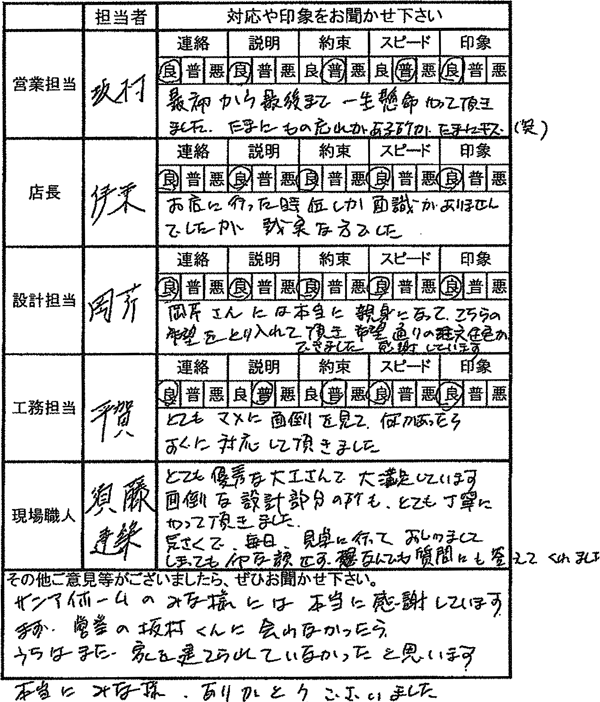 担当者 対応や印象をお聞かせ下さい
連絡 説明 約束 スピード 印象
営業担当 坂村 良 普 悪 良 普 悪 良 普 悪 良 普 悪 良 普 悪
最初から最後まで一生懸命やって頂き
ました。たまにもの忘れがある所が、たまにキズ (笑)
連絡 説明 約束 スピード 印象
店長 伊東 良 普 悪 良 普 悪 良 普 悪 良 普 悪 良 普 悪
お店に行った時位しか面識がありません
でしたが 誠実な方でした
連絡 説明 約束 スピード 印象
設計担当 岡芹 良 普 悪 良 普 悪 良 普 悪 良 普 悪 良 普 悪
岡芹さんには本当に親身になって、こちらの
希望をとり入れて頂き 希望通りの注文住宅が
できました 感謝しています
連絡 説明 約束 スピード 印象
工務担当 平賀 良 普 悪 良 普 悪 良 普 悪 良 普 悪 良 普 悪
とてもマメに面倒を見て、何かあったら
すぐに対応して頂きました
現場職人 須藤建築
とても優秀な大工さんで大満足しています
面倒な設計部分の所も、とても丁寧に
やって頂きました。
気さくで、毎日、見学に行って おじゃまして
しまっても イヤな顔せず、なんでも質問にも答えてくれました
その他ご意見等がございましたら、ぜひお聞かせ下さい。
サンアイホームのみな様には本当に感謝しています
まず、営業の坂村くんに会わなかったら
うちはまだ、家を建てられていなかったと思います
本当にみな様、ありがとうございました